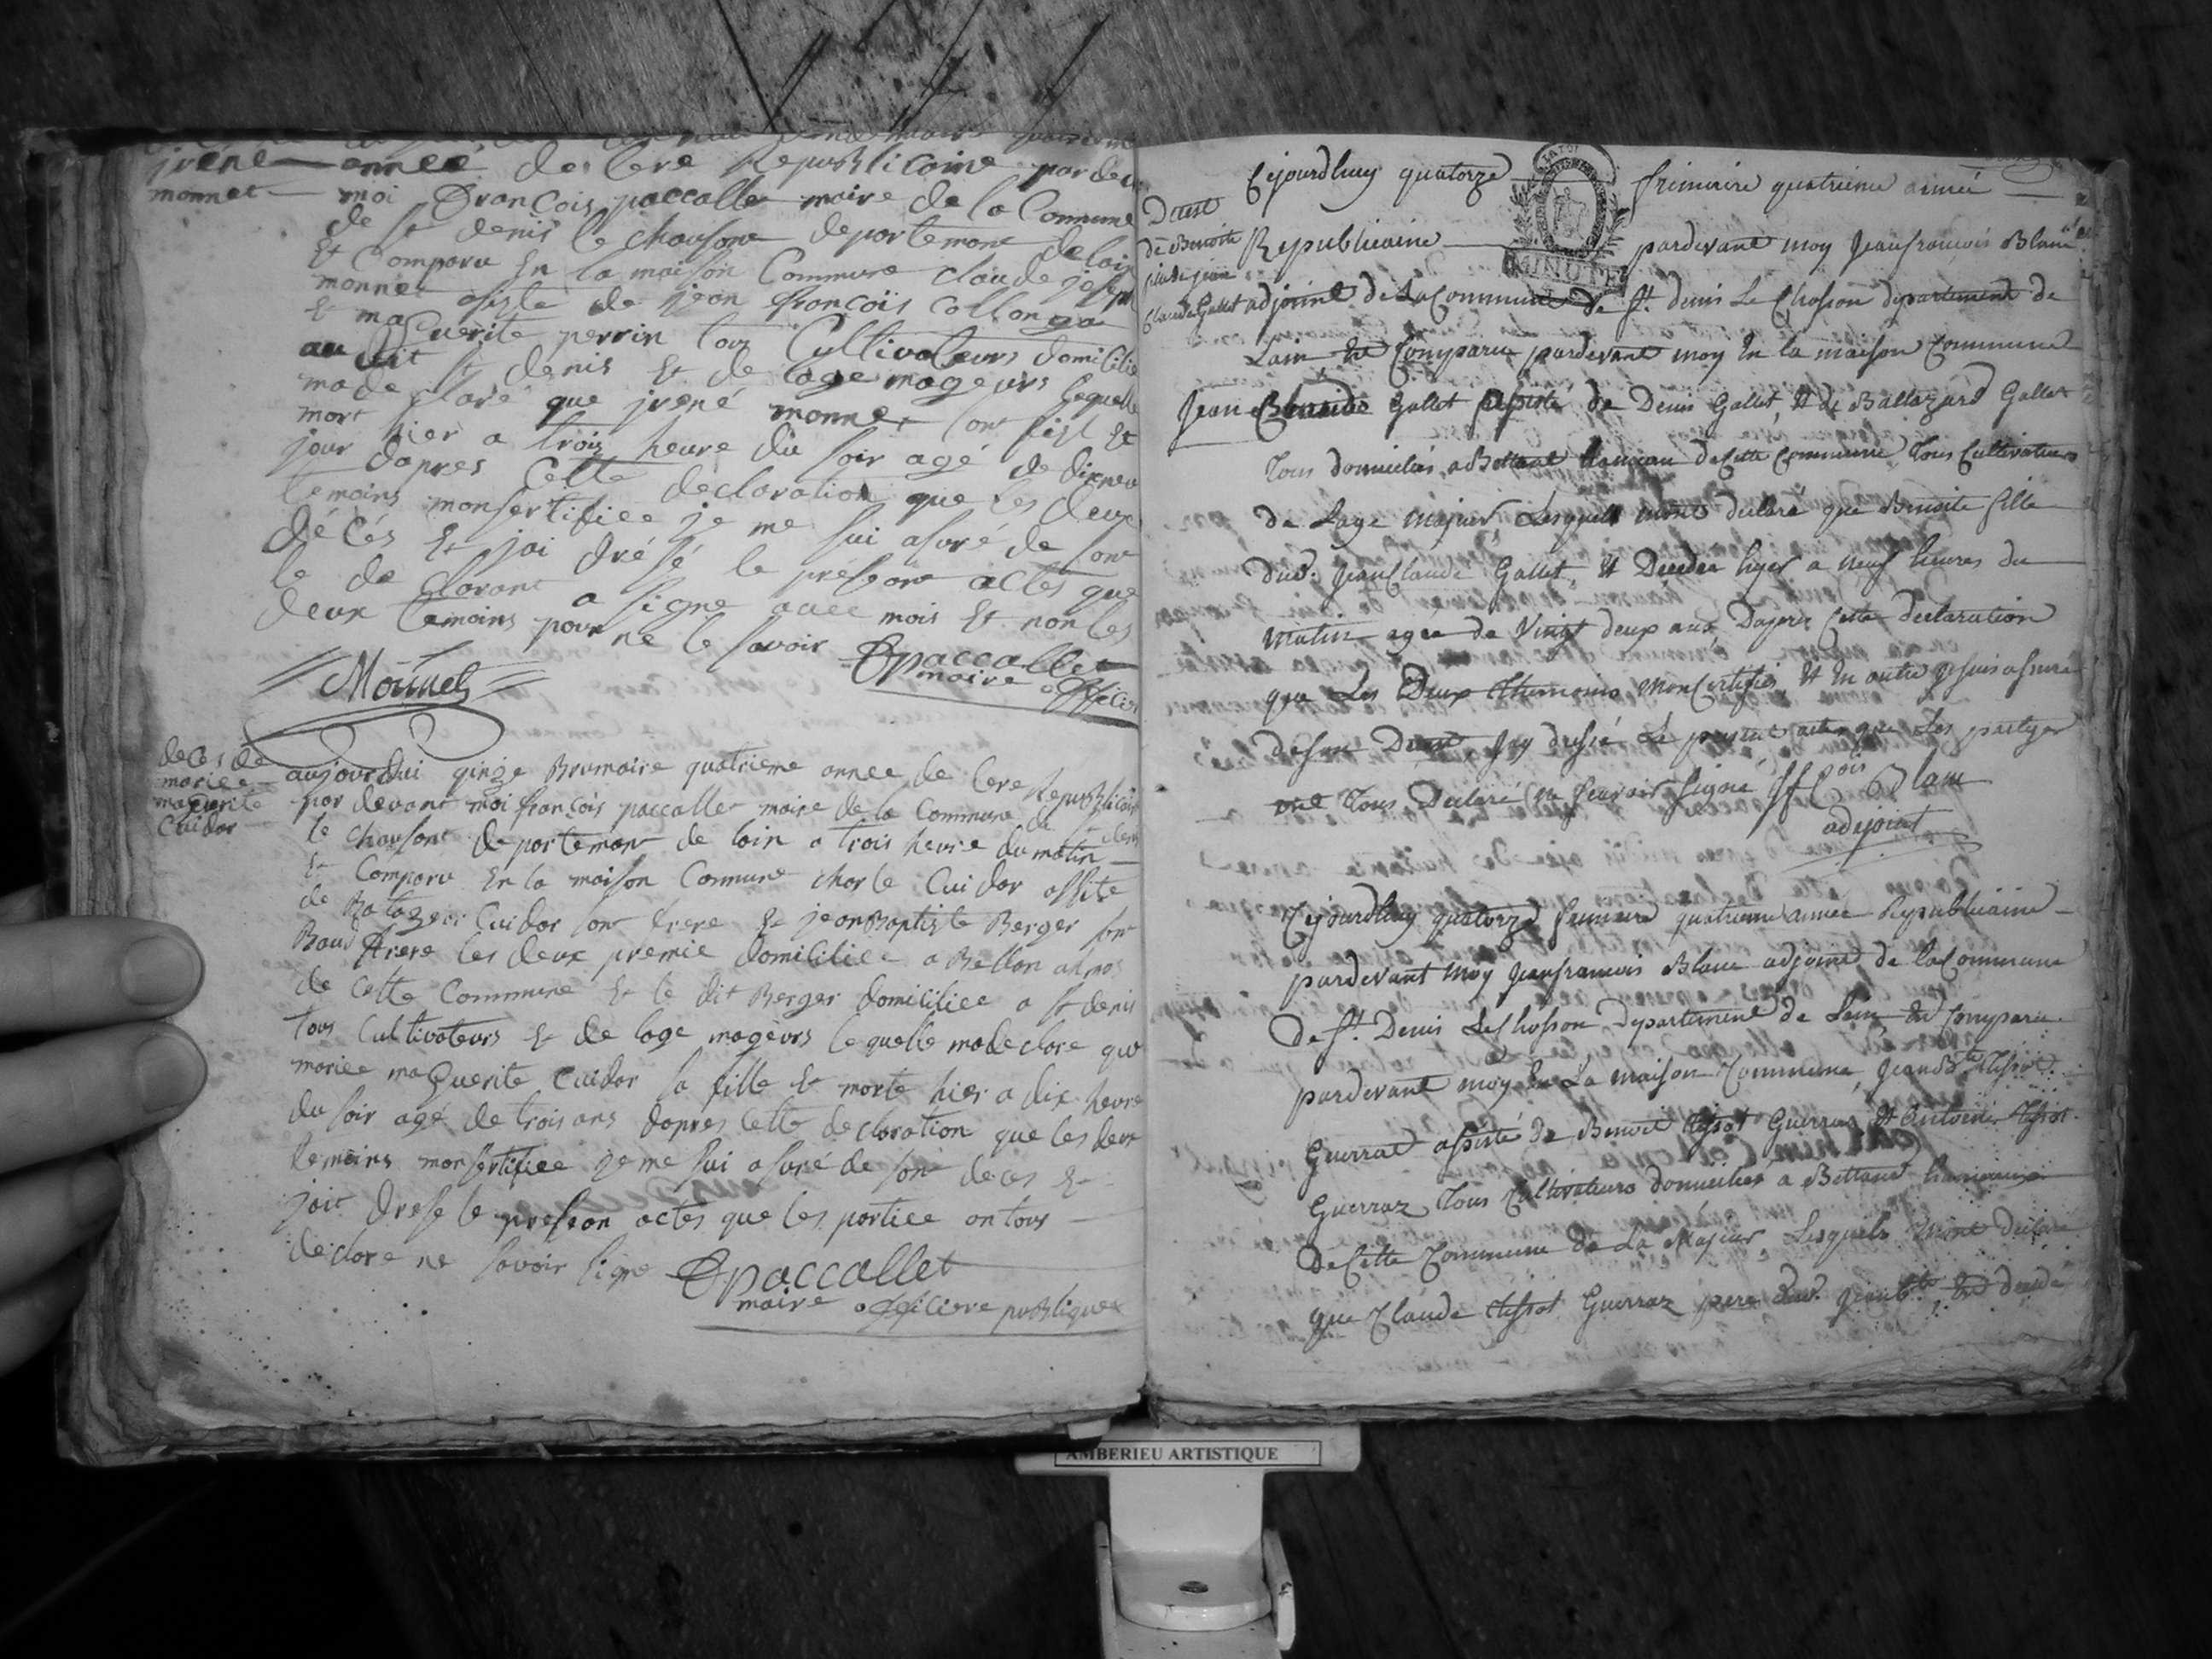 jréné
monnet
année de lere Republicaine par deva
moi François paccallet maire de la Commune
de st denis le chausont departemant de loin
Et Comparu En la maison Commune claude joseph
monnet asisté de jean françois Collonga
Et maguerite perrin tous Cultivateurs domicilie
au dit st denis Et de lage mageurs lequelle
ma declaré que jréné monnet son fist Et
mort hier a trois heure du soir agé de dixneu
jour dapres Cette declaration que les deux
temoins monsertifiee je me sui asuré de sont
décés Et jai drésé le preseant actes que
le declarant a signe avec mois Et non les
deux temoins pour ne le savoir
Monnet
fpaccallet
maire officier
deces de
mariee
maguerite
Cuidor
aujourdui quinze Brumaire quatrieme annee de lere Republicain
par devant moi françois paccallet maire de la Commune de st denis
le chausont departemant de loin a trois heure du matin
Et Comparu En la maison Commune charle Cuidor assite
de Batazar Cuidor sont frere Et jeanBaptiste Berger sont
Baud frere les deux premie domicilice a Bettan
de Cette Commune Et le dit Berger domicilice a st denis
tous Cultivateurs Et de lage mageurs lequelle madeclare que
mariee maguerite Cuidor sa fille Et morte hier a dix heure
du soir agé de trois ans dapres Cette declaration que les deux
temoins monsertifiee je me sui asuré de sont deces Et
jait drese le presean actes que les partiee on tous
declare ne savoir signe
fpaccallet
maire officiere publique
Cejourdhuy quatorze frimaire quatrieme année
LA LOI
MINUTE
Deces
de Benoite
fille de jean
Claude Gallet
Republicaine pardevant moy Jeanfrançois Blanc
adjoint de La Commune de St. denis Le Chosson departement de
Lain Est Comparu pardevant moy En la maison Commune
Jean Claude Gallet assisté de Denis Gallet, Et de Baltazard Gallet
Tous domiciliés a Bettant hameau de Cette Commune, Tous Cultivateurs
de Lage Majeur, Lesquels mont declaré que Benoite fille
dud. Jean Claude Gallet, Et Decedée hyer a Neuf heures du
Matin agée de Vingt deux ans, Dapres Cette declaration
que Les Deux Themoins MonCertifiés Et En outre je suis assuré
de son Deces, Jay dressé Le present acte que Les partyes
ont Tous Declaré ne Scavoir Signé JfCois Blanc
adjoint
Cejourdhuy quatorze frimaire quatrieme année Republicaine
pardevant Moy Jeanfrancois Blanc adjoint de la Commune
de St. Denis LeChosson departement de Lain Est Comparu
pardevant moy En La maison Commune, Jean Bte Tissot
Guerraz assisté de Benoit Tissot Guerraz Et Antoine Tissot
Guerraz Tous Cultivateurs domiciliés a Bettant hameau
de Cette Commune de La Majeur, Lesquels Mont declaré
que Claude Tissot Guerraz pere dud. Jean Bte Est decedé
AMBERIEU ARTISTIQUE